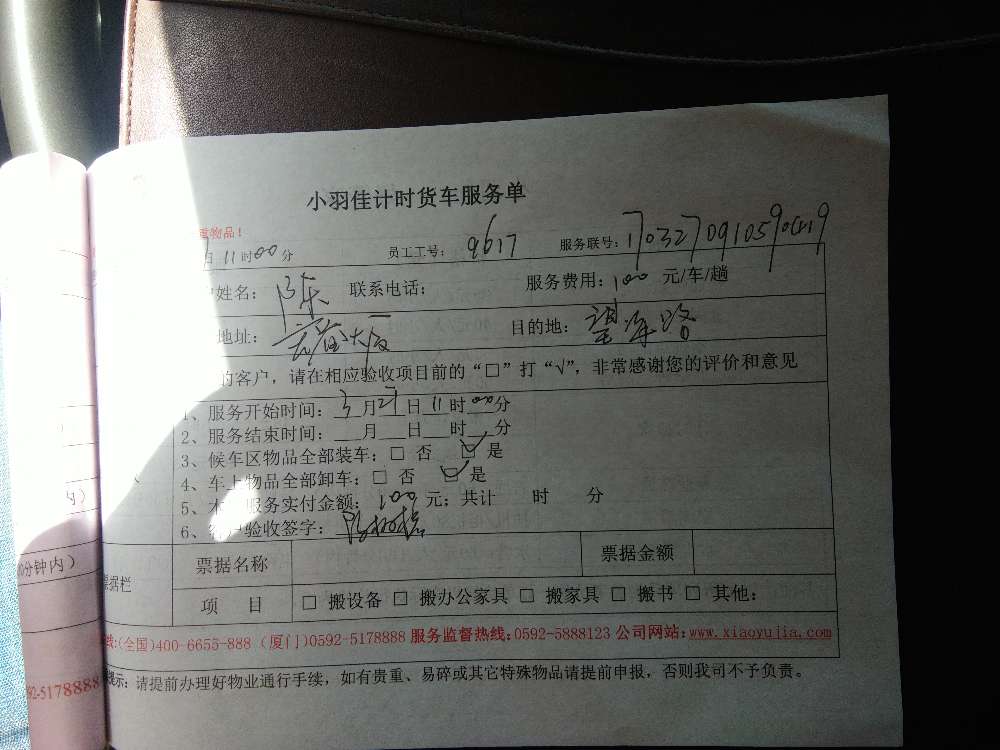 小羽佳计时货车服务单
重物品！
日 11时00分 员工工号： 9617 服务联号：
姓名： 陈 联系电话： 服务费用：100 元/车/趟
地址： 大厦 目的地： 望海路
的客户，请在相应验收项目前的“□”打“√”，非常感谢您的评价和意见
1、服务开始时间：3月27日11时00分
2、服务结束时间：___月___日___时___分
3、候车区物品全部装车：□ 否 ☑ 是
4、车上物品全部卸车：□ 否 ☑ 是
5、本 服务实付金额：100元；共计 时 分
6、客户验收签字：
票据栏 票据名称 票据金额
项 目 □ 搬设备 □ 搬办公家具 □ 搬家具 □ 搬书 □ 其他：
线:(全国)400-6655-888 (厦门)0592-5178888 服务监督热线:0592-5888123 公司网站:www.xiaoyujia.com
提示：请提前办理好物业通行手续，如有贵重、易碎或其它特殊物品请提前申报，否则我司不予负责。
0分钟内）
92-5178888